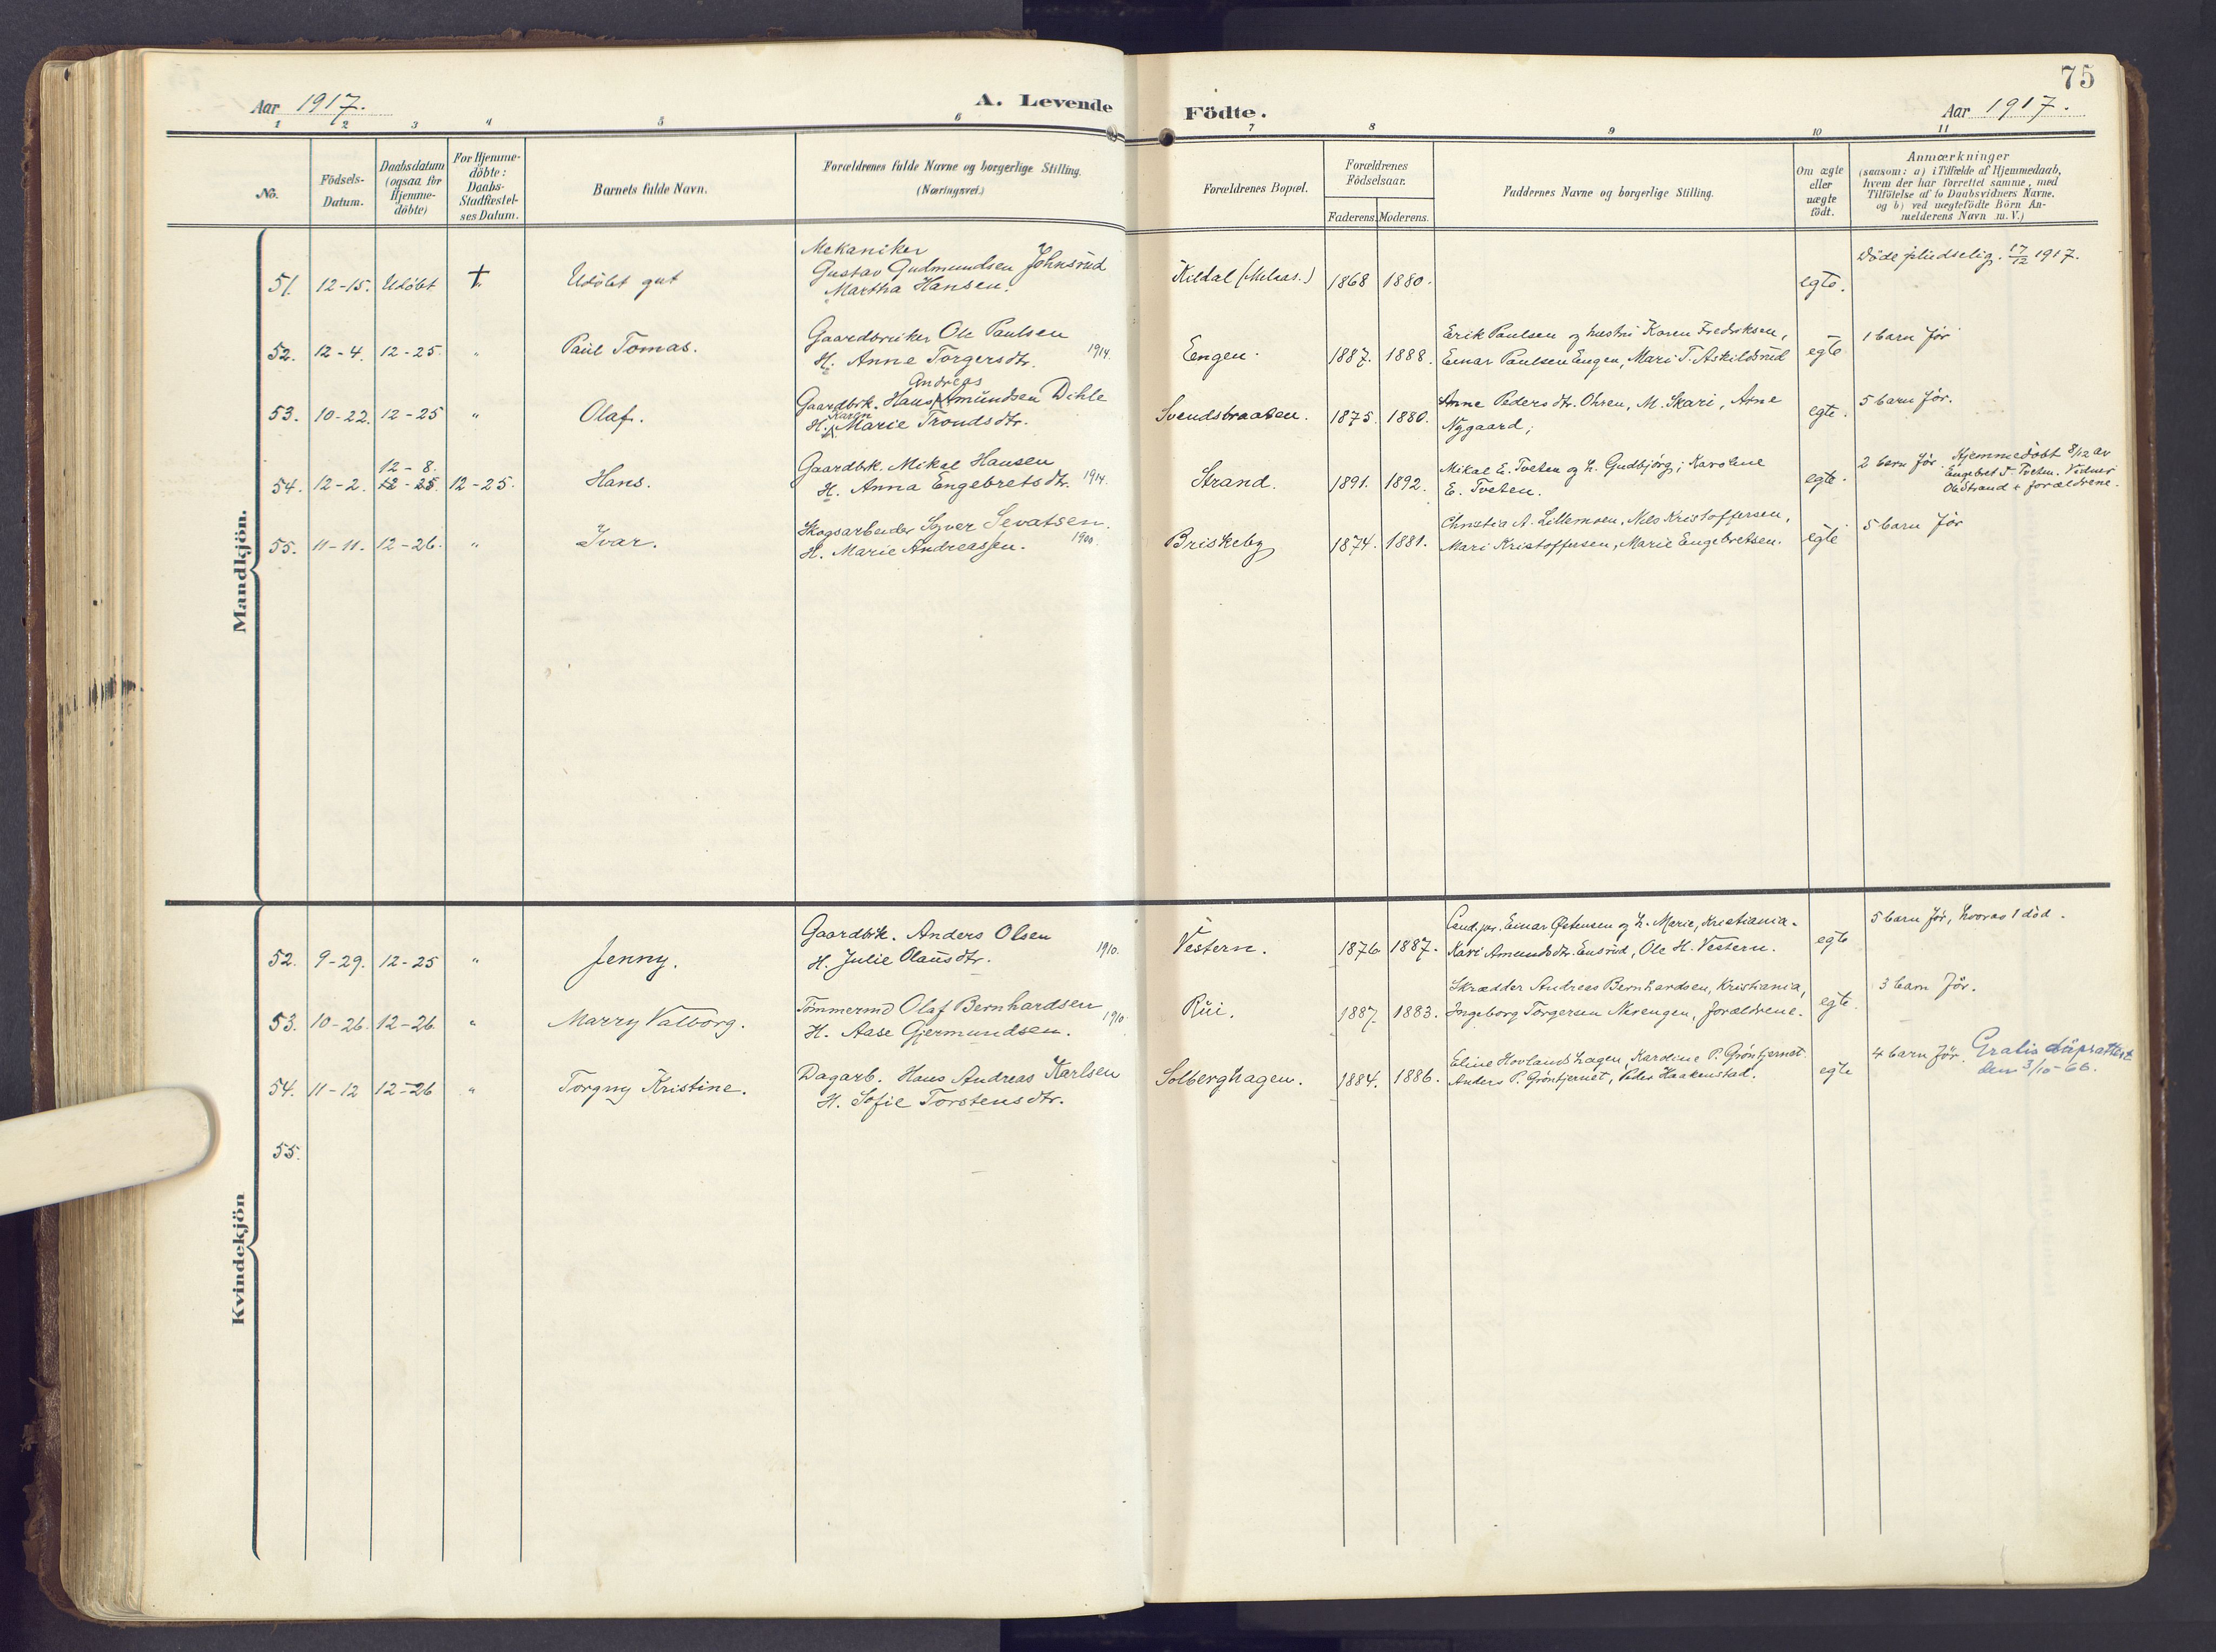 75
Aar 1917.
A. Levende Födte.
Aar 1917.
1 2 3 4 5 6 7 8 9 10 11
No.
Födsels-
Datum.
Daabsdatum
(ogsaa for
Hjemme-
döbte)
For Hjemme-
döbte:
Daabs-
Stadfæstel-
ses Datum.
Barnets fulde Navn.
Forældrenes fulde Navne og borgerlige Stilling.
(Næringsvei.)
Forældrenes Bopæl.
Forældrenes
Födselsaar.
Faderens. Moderens.
Faddernes Navne og borgerlige Stilling.
Om ægte
eller
uægte
födt.
Anmærkninger
(saasom: a) i Tilfælde af Hjemmedaab,
hvem der har forrettet samme, med
Tilföielse af to Daabsvidners Navne.
og b) ved uægtefödte Börn An-
melderens Navn m. V.)
Mandkjön.
51. 12-15. Udöbt † Udöbt gut
Mekaniker
Gustav Gudmundsen Johnsrud
Martha Hansen.
Kildal (Melaas.) 1868 1880. egte.
Döde pludselig. 17/12 1917.
52. 12-4. 12-25. " Paul Tomas.
Gaardbruker Ole Paulsen
H. Anne Torgersdtr. 1914.
Engen. 1887. 1888.
Erik Paulsen og hustru Karen Fredriksen,
Einar Paulsen Engen, Mari T. Askildsrud
egte 1 barn för
53. 10-22. 12-25 " Olaf.
Andreas
Gaardbrk. Hans Amundsen Dihle
Karen
H. Marie Trondsdtr.
Svendsbraaten. 1875. 1880.
Anne Pedersdtr. Ohren, M. Skari, Arne
Nygaard;
egte. 5 barn för.
54. 12-2. 12-8.
12-25. 12-25. Hans.
Gaardbrk. Mikal Hansen
H. Anna Engebretsdtr. 1914.
Strand. 1891. 1892.
Mikal E. Tveten og h. Gudbjörg; Karoline
E. Tveten.
egte. 2 barn för. Hjemmedöbt 8/12 av
Engebret T. Tveten. Vidner
Ole Strand + forældrene.
55. 11-11. 12-26. " Ivar.
Skogsarbeider Syver Sevatsen.
H. Marie Andreassen. 1900.
Briskeby 1874. 1881.
Christia A. Lillemoen, Nils Kristoffersen,
Mari Kristoffersen, Marie Engebretsen.
egte 5 barn för
Kvindekjön
52. 9-29. 12-25 " Jenny.
Gaardbrk. Anders Olsen
H. Julie Olausdtr. 1910.
Vestern. 1876. 1887.
Cand. jur. Einar Østensen og h. Marie, Kristiania.
Kari Amundsdtr. Ensrud, Ole H. Vestern.
egte 5 barn för, hvorav 1 död.
53. 10-26. 12-26. " Marry Valborg.
Tömmermd Olaf Bernhardsen
H. Aase Gjermundsen. 1910.
Rui. 1887. 1883.
Skrædder Andreas Bernhardsen, Kristiania,
Ingeborg Torgersen Nerengen, forældrene.
egte. 3 barn för.
54. 11-12 12-26 " Torgny Kristine.
Dagarb. Hans Andreas Karlsen
H. Sofie Torstensdtr.
Solberghagen. 1884. 1886.
Eline Hovlandshagen, Karoline P. Gröntjernet.
Anders P. Gröntjernet, Peder Haakenstad.
egte 4 barn för. Gratis dåpsattest
den 3/10-66.
55.